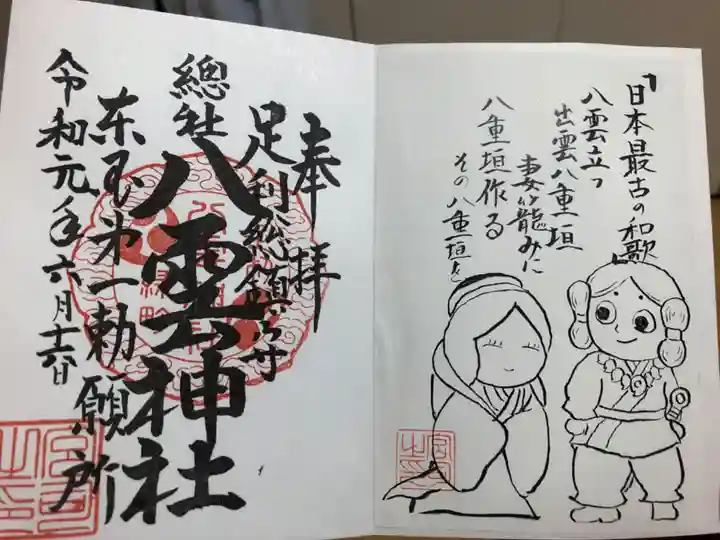 「日本最古の和歌」
八雲立つ
出雲八重垣
妻籠みに
八重垣作る
その八重垣を
奉拝
足利総鎮守
總社
八雲神社
东国㐧一勅願所
令和元年六月十六日